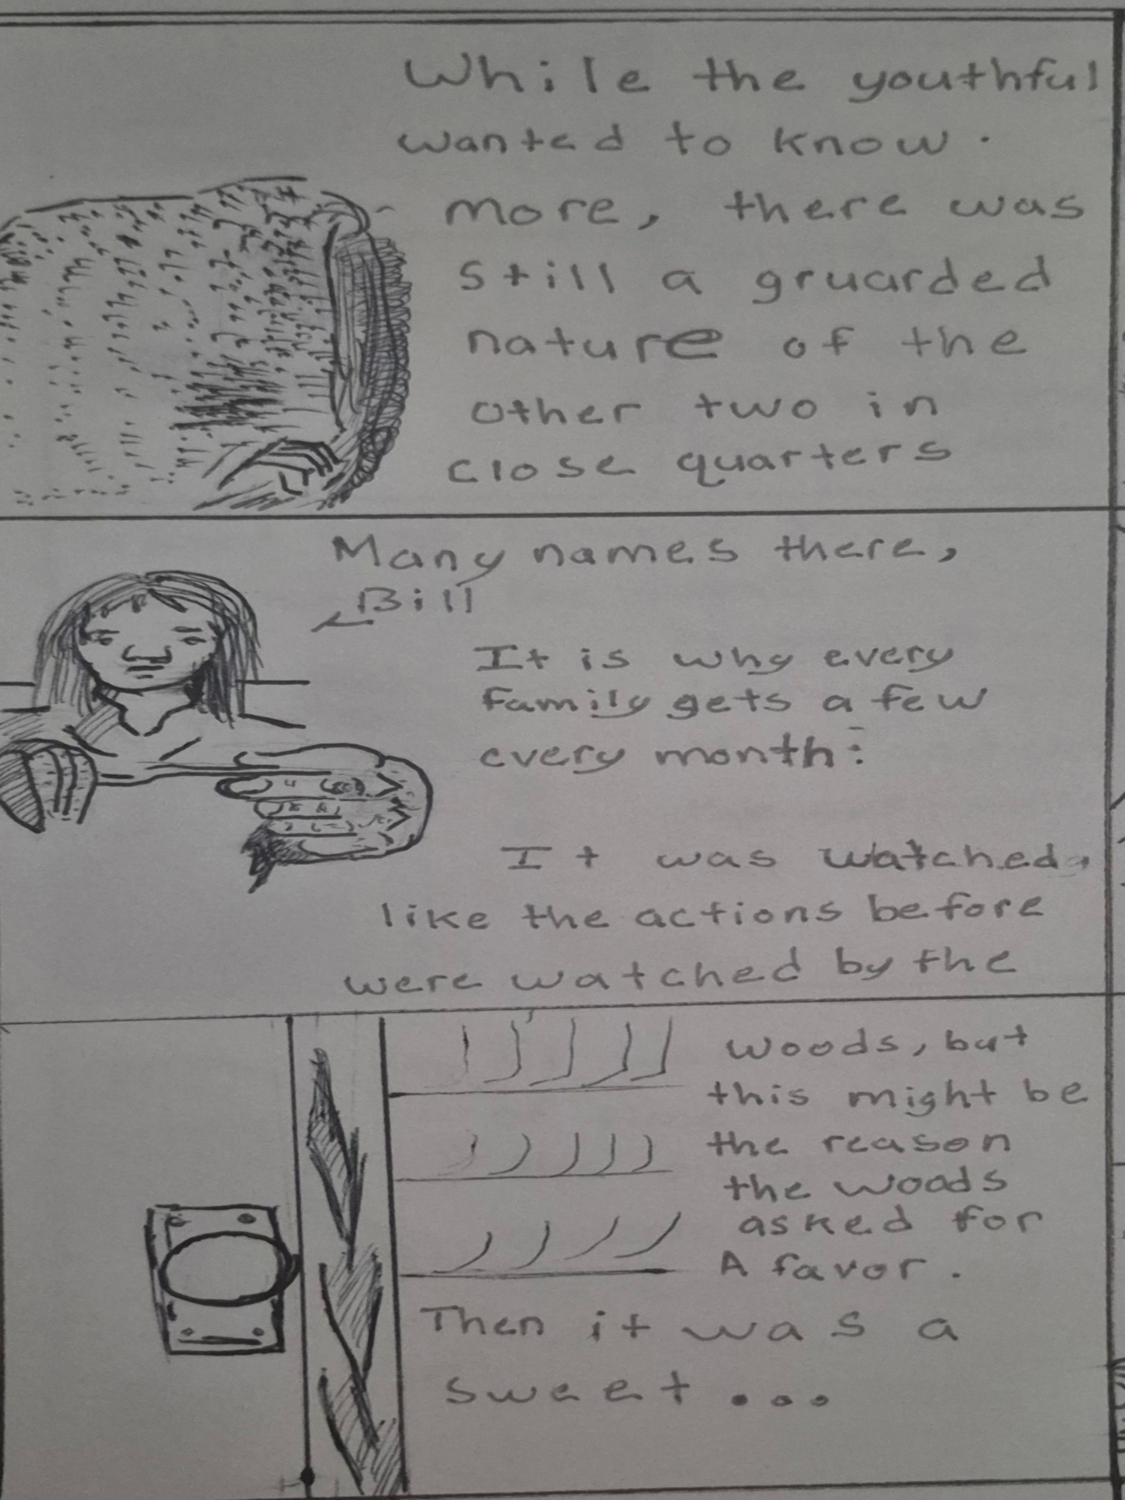 While the youthful
wanted to know.
more, there was
still a gruarded
nature of the
other two in
close quarters
Many names there,
Bill
It is why every
family gets a few
every month:
It was watched,
like the actions before
were watched by the
woods, but
this might be
the reason
the woods
asked for
A favor.
Then it was a
sweet...